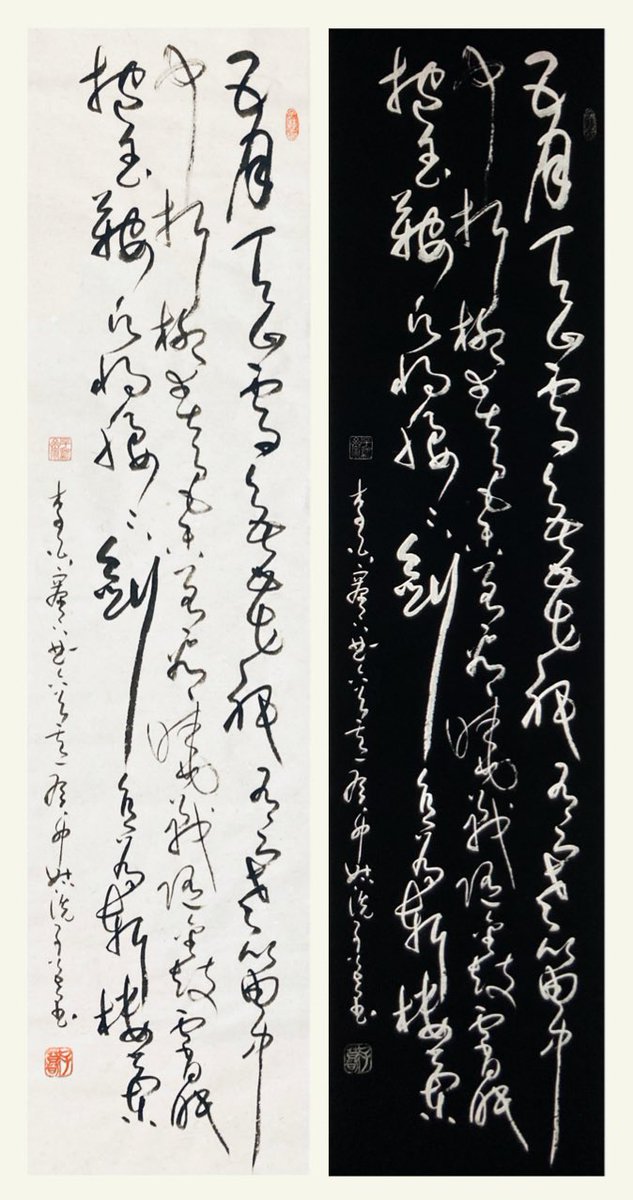 五月天山雪無花祇有寒笛中
聞折柳春色未曾看曉戰隨金鼓宵眠
抱玉鞍願將腰下劍直為斬樓蘭
李白塞下曲六首其一癸卯姑洗
五月天山雪無花祇有寒笛中
聞折柳春色未曾看曉戰隨金鼓宵眠
抱玉鞍願將腰下劍直為斬樓蘭
李白塞下曲六首其一癸卯姑洗